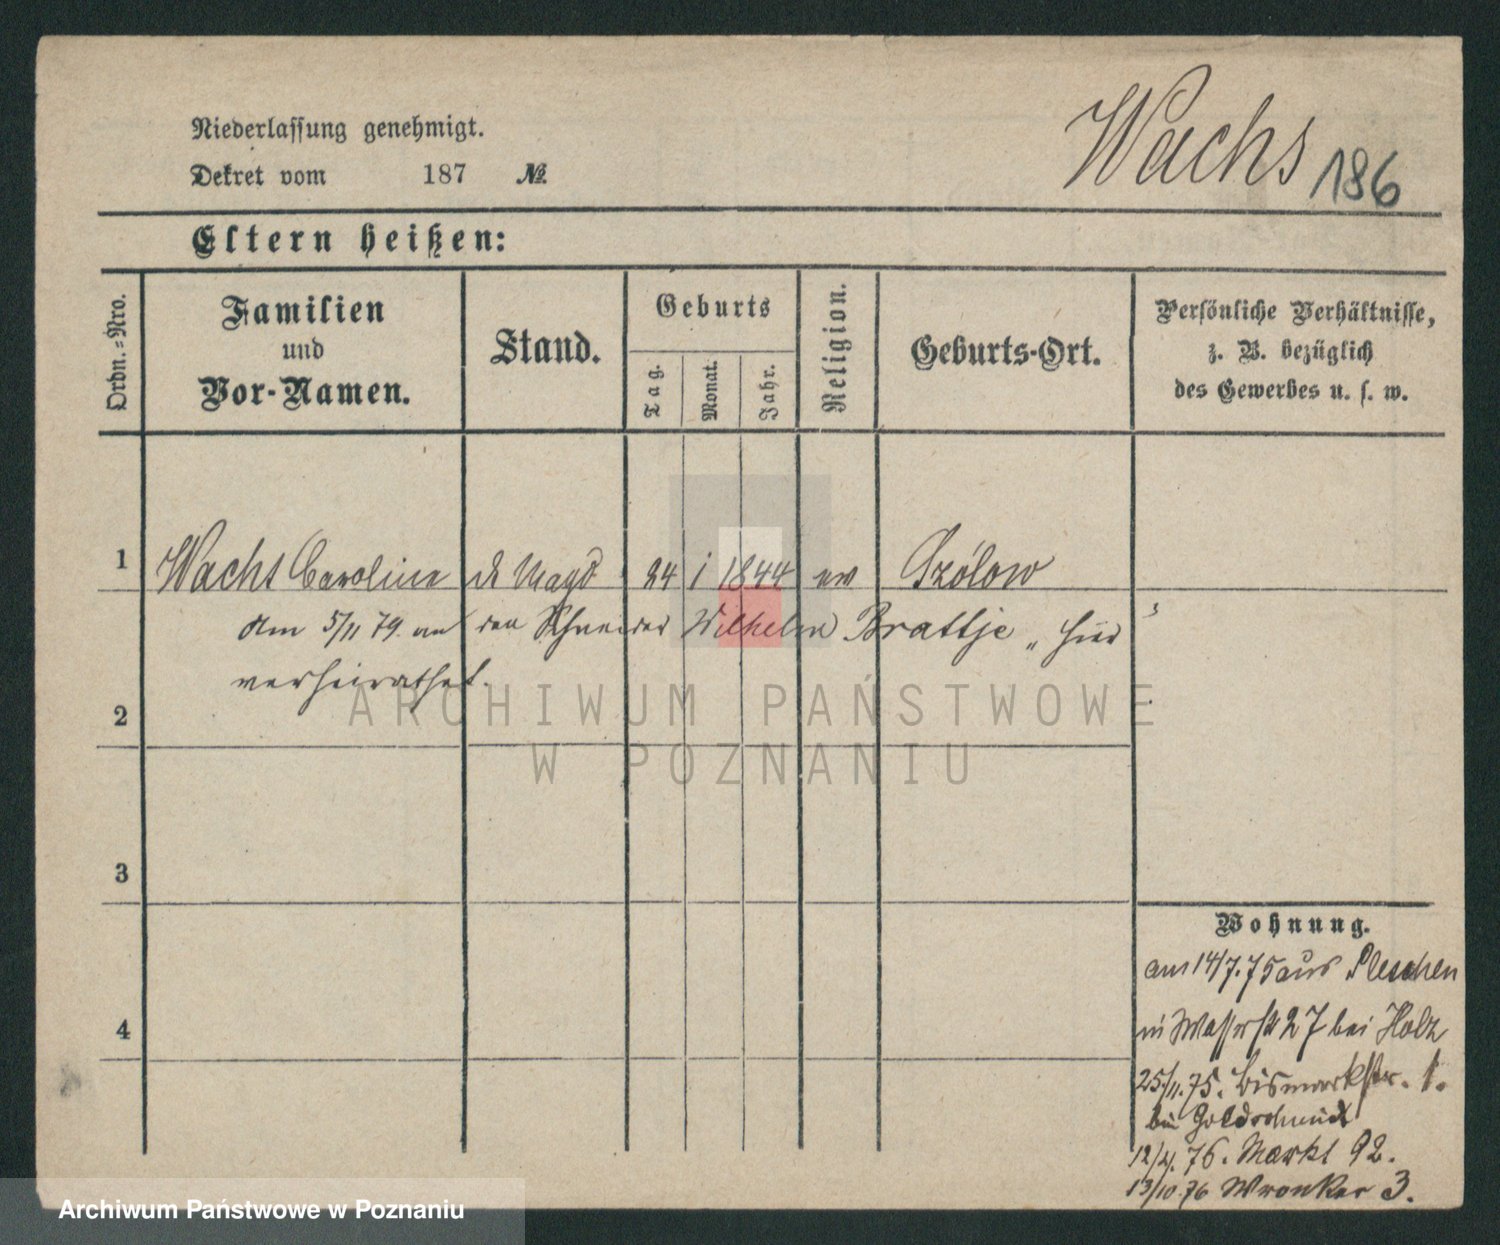 Niederlassung genehmigt.
Dekret vom 187 №
Wachs 186
Eltern heißen:
Ordn.-Nro.
Familien
und
Vor-Namen.
Stand.
Geburts
Tag.
Monat.
Jahr.
Religion.
Geburts-Ort.
Persönliche Verhältnisse,
z. B. bezüglich
des Gewerbes u. s. w.
1 Wachs Caroline d Magd 24 1 1844 ev Czólow
Am 5/11 79. an den Schneider Wilhelm Brattje hier
verheirathet.
2
3
4
Wohnung.
am 14/7.75 aus Pleschen
in Wasserstr 27 bei Holz
25/11.75. Bismarckstr. 1.
bei Goldschmidt
12/4. 76. Markt 92.
13/10.76 Wronker 3.
ARCHIWUM PAŃSTWOWE
W POZNANIU
Archiwum Państwowe w Poznaniu